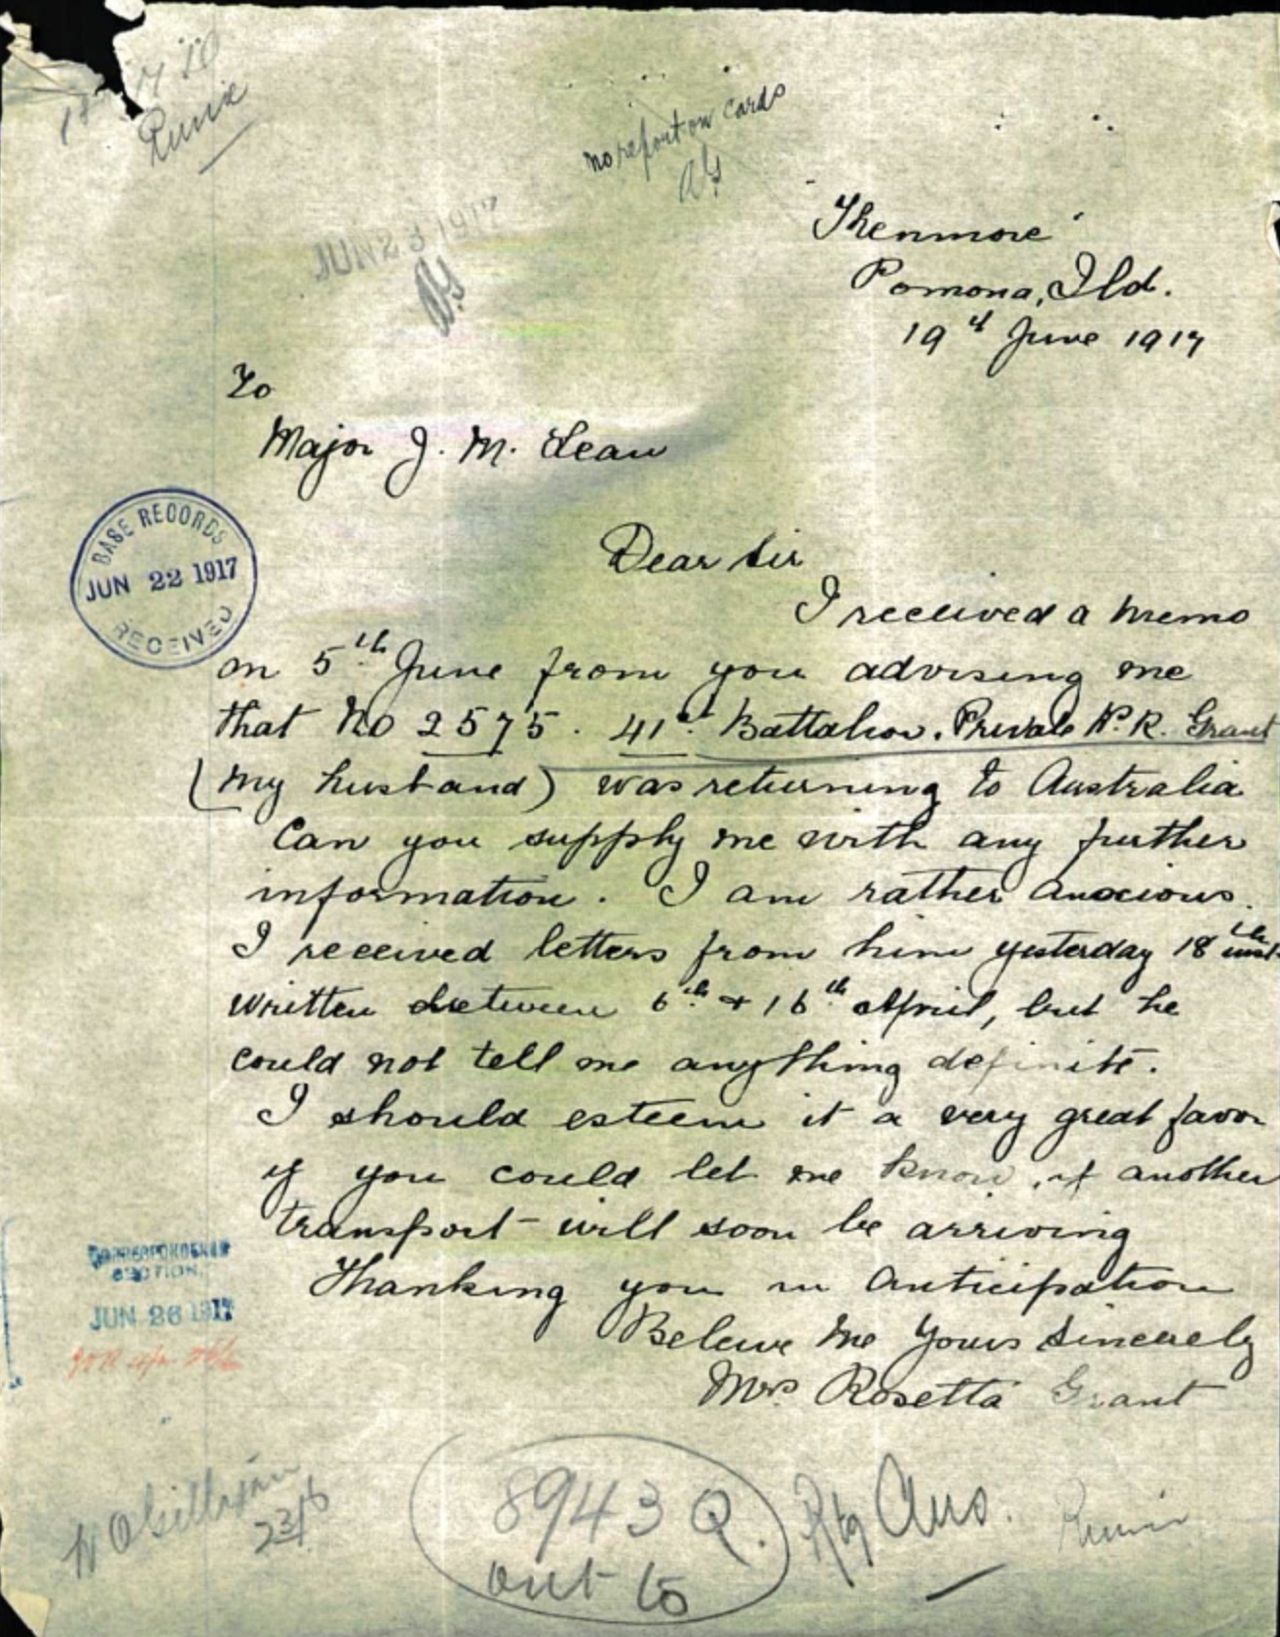 no report on cards
JUN 23 1917
"Kenmore"
Pomona, Qld.
19th June 1917
To
Major J. M. Lean
BASE RECORDS
JUN 22 1917
RECEIVED
Dear Sir
I received a memo
on 5th June from you advising me
that No 2575. 41st Battalion. Private P. R. Grant
(my husband) was returning to Australia
Can you supply me with any further
information. I am rather anxious.
I received letters from him yesterday 18th inst.
written between 6th & 16th April, but he
could not tell me anything definite.
I should esteem it a very great favor
if you could let me know, if another
transport will soon be arriving
Thanking you in anticipation
Believe me Yours Sincerely
Mrs Rosetta Grant
CORRESPONDENCE
SECTION.
JUN 26 1917
23/6
8943 Q.
out 15
Rtg Aus.